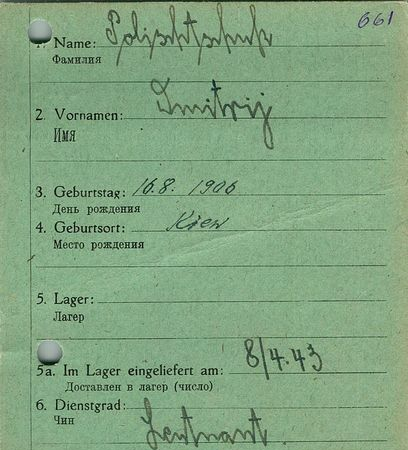 661
1. Name: Polischtschuk
Фамилия
2. Vornamen: Dmitrij
Имя
3. Geburtstag: 16.8. 1906
День рождения
4. Geburtsort: Kiew
Место рождения
5. Lager:
Лагер
5a. Im Lager eingeliefert am: 8/4.43
Доставлен в лагер (число)
6. Dienstgrad: Leutnant.
Чин